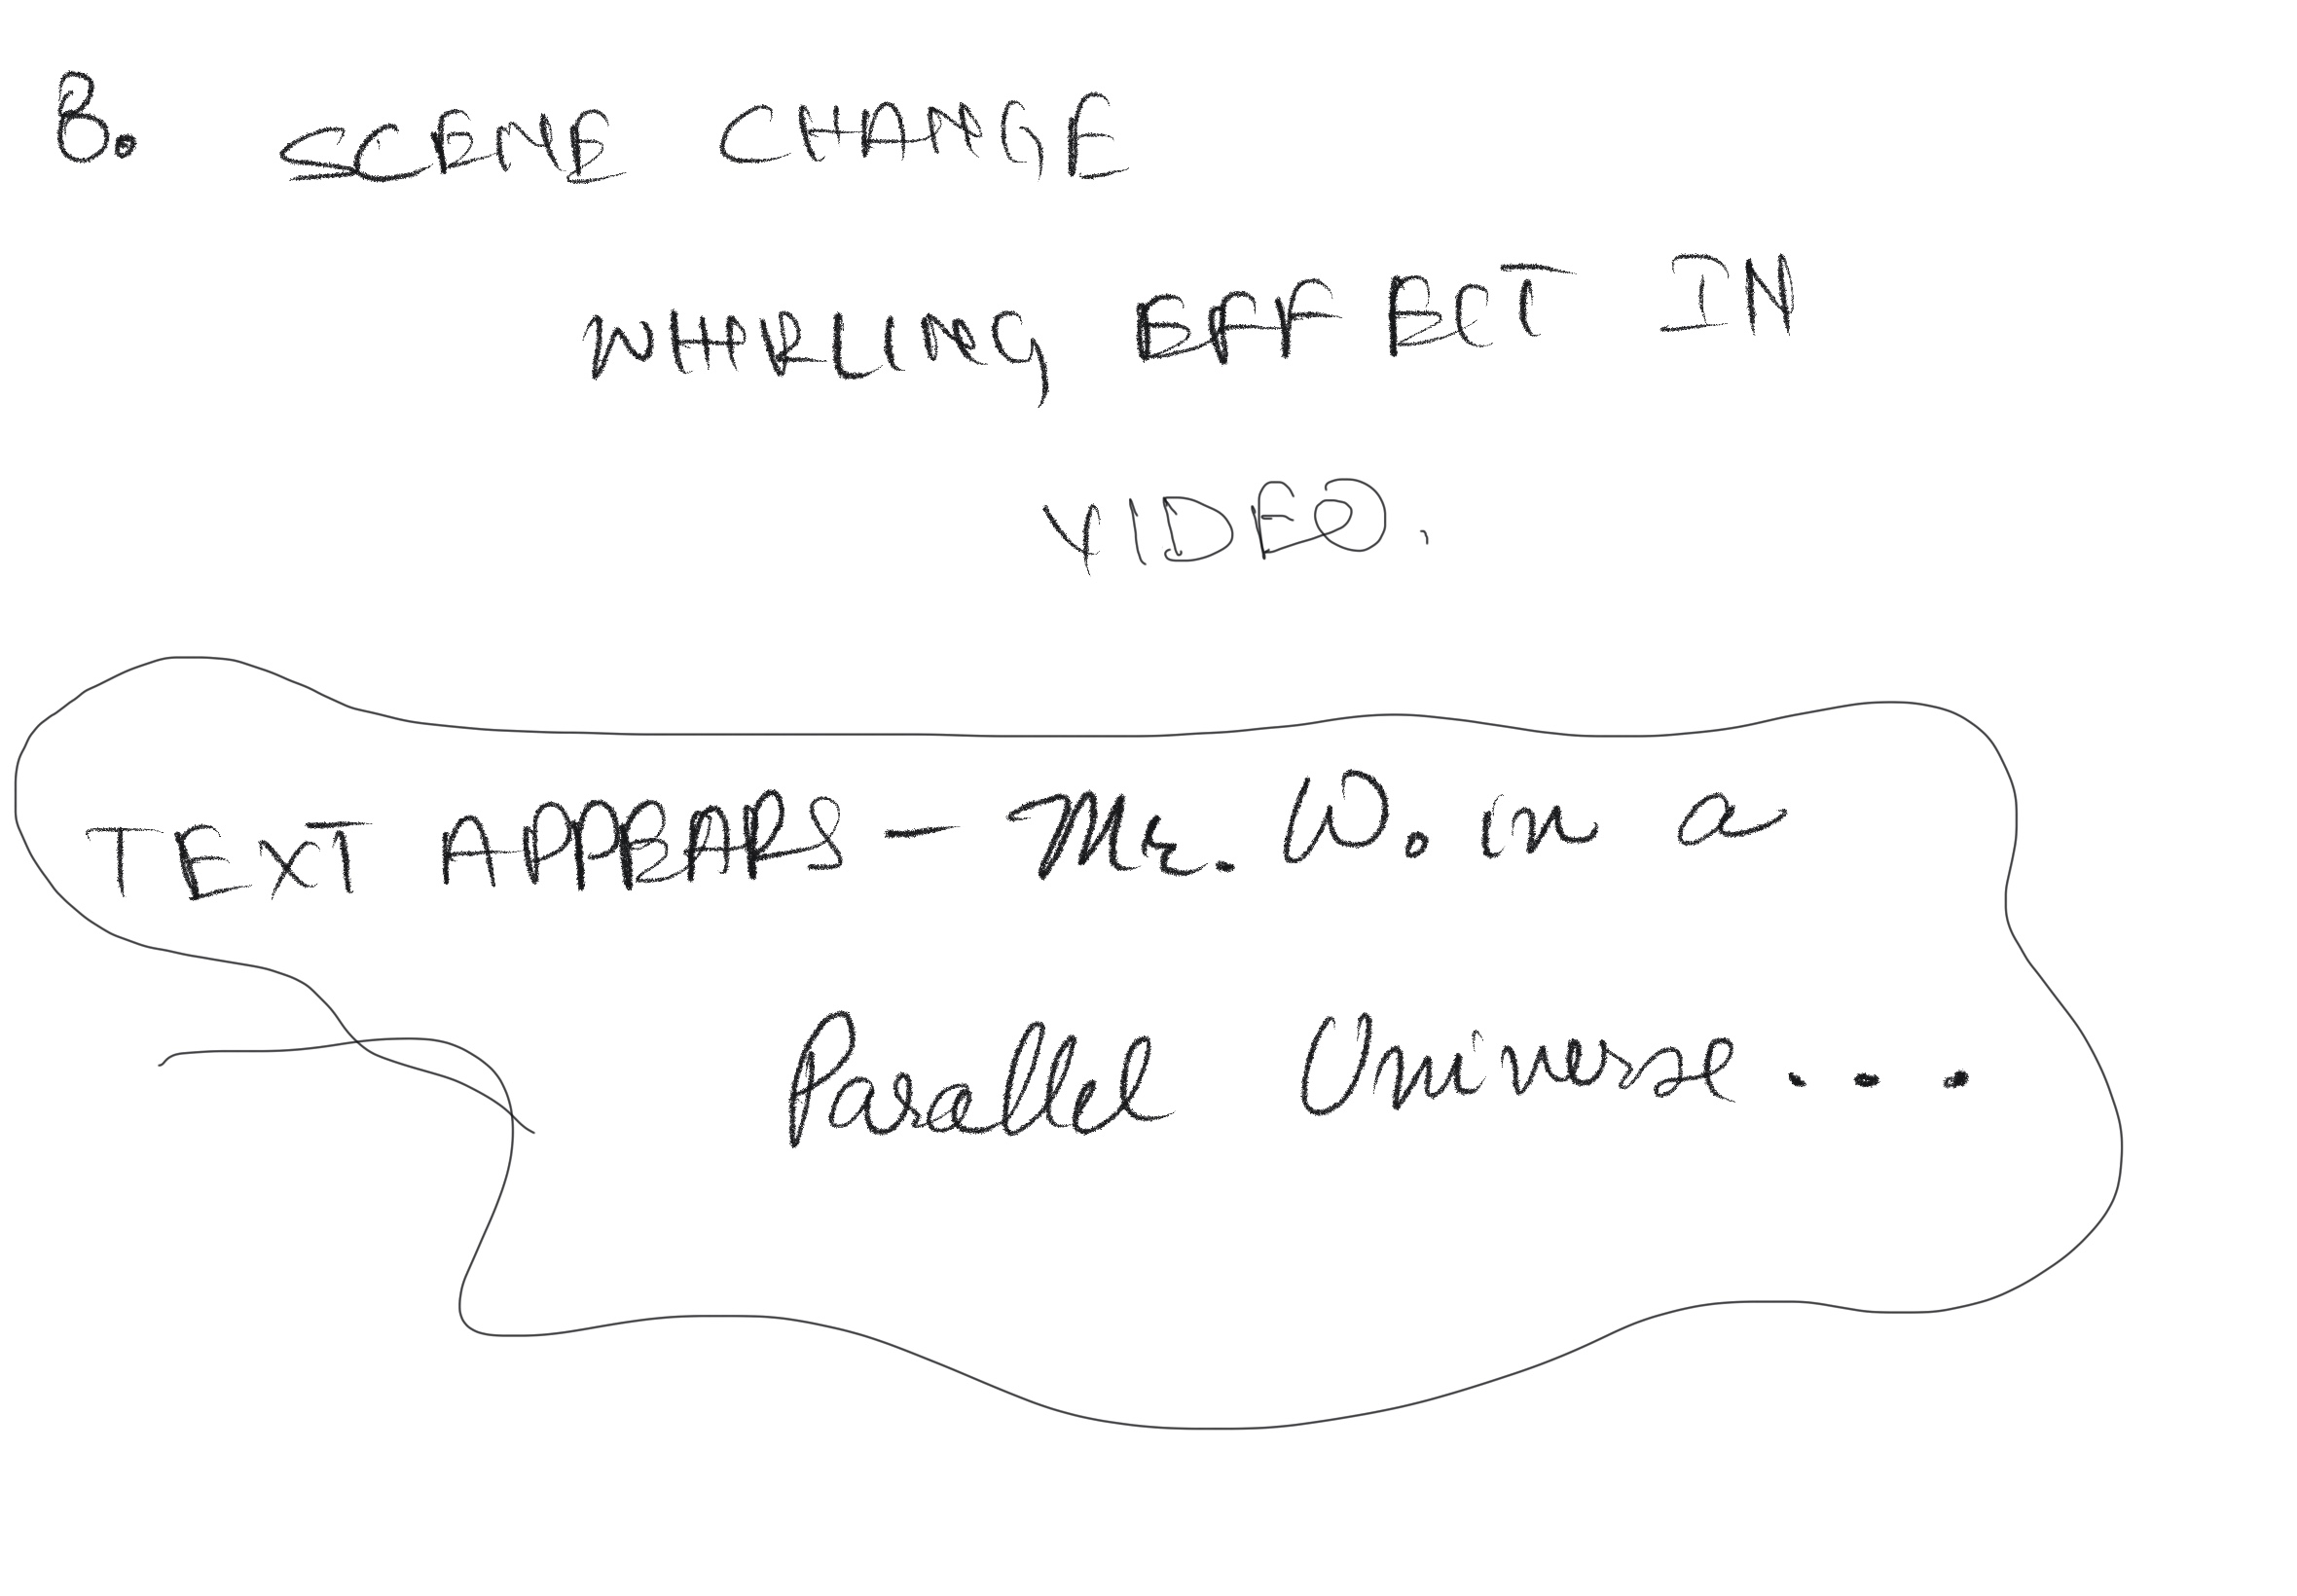 8. SCENE CHANGE
WHIRLING EFFECT IN
VIDEO.
TEXT APPEARS - Mr. W. in a
Parallel Universe...